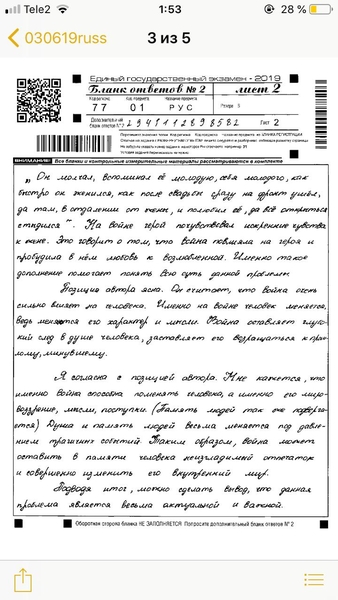 Tele2
1:53
28 %
030619russ
3 из 5
Единый государственный экзамен - 2019
Бланк ответов № 2
лист 2
Код региона
Код предмета
Название предмета
77
01
РУС
Резерв - 5
Дополнительный бланк ответов № 2
Лист 2
ВНИМАНИЕ!
Все бланки и контрольные измерительные материалы рассматриваются в комплекте
„Он молчал, вспоминал её молодую, себя молодого, как
быстро он женился, как после свадьбы сразу на фронт ушёл,
да там, в отдалении от жены, и полюбил её, да всё открыться
стыдился". На войне герой почувствовал искренние чувства
к жене. Это говорит о том, что война повлияла на героя и
пробудила в нём любовь к возлюбленной. Именно такое
дополнение помогает понять всю суть данной проблемы.
Позиция автора ясна. Он считает, что война очень
сильно влияет на человека. Именно на войне человек меняется,
ведь меняются его характер и мысли. Война оставляет глубо-
кий след в душе человека, заставляет его возвращаться к прош-
лому, минувшему.
Я согласна с позицией автора. Мне кажется, что
именно война способна поменять человека, а именно его миро-
воззрение, мысли, поступки (Память людей так же подверга-
ется) Душа и память людей весьма меняется под давле-
нием трагичных событий. Таким образом, война может
оставить в памяти человека неизгладимый отпечаток
и совершенно изменить его внутренний мир.
Подводя итог, можно сделать вывод, что данная
проблема является весьма актуальной и важной.
Оборотная сторона бланка НЕ ЗАПОЛНЯЕТСЯ. Попросите дополнительный бланк ответов № 2